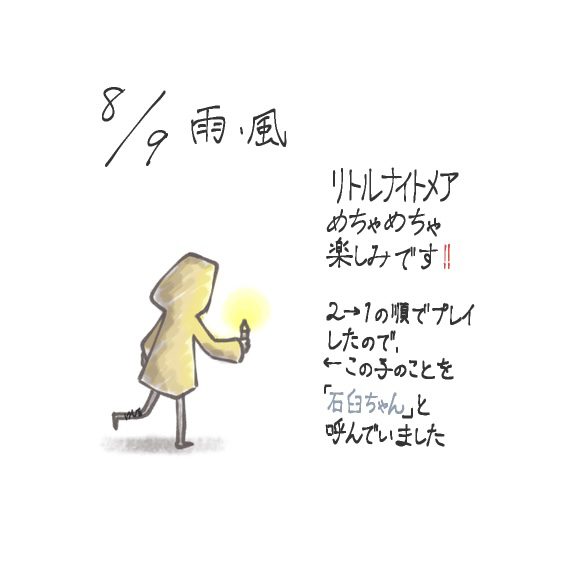 8/9 雨、風
リトルナイトメア
めちゃめちゃ
楽しみです!!
2→1の順でプレイ
したので、
←この子のことを
「石臼ちゃん」と
呼んでいました